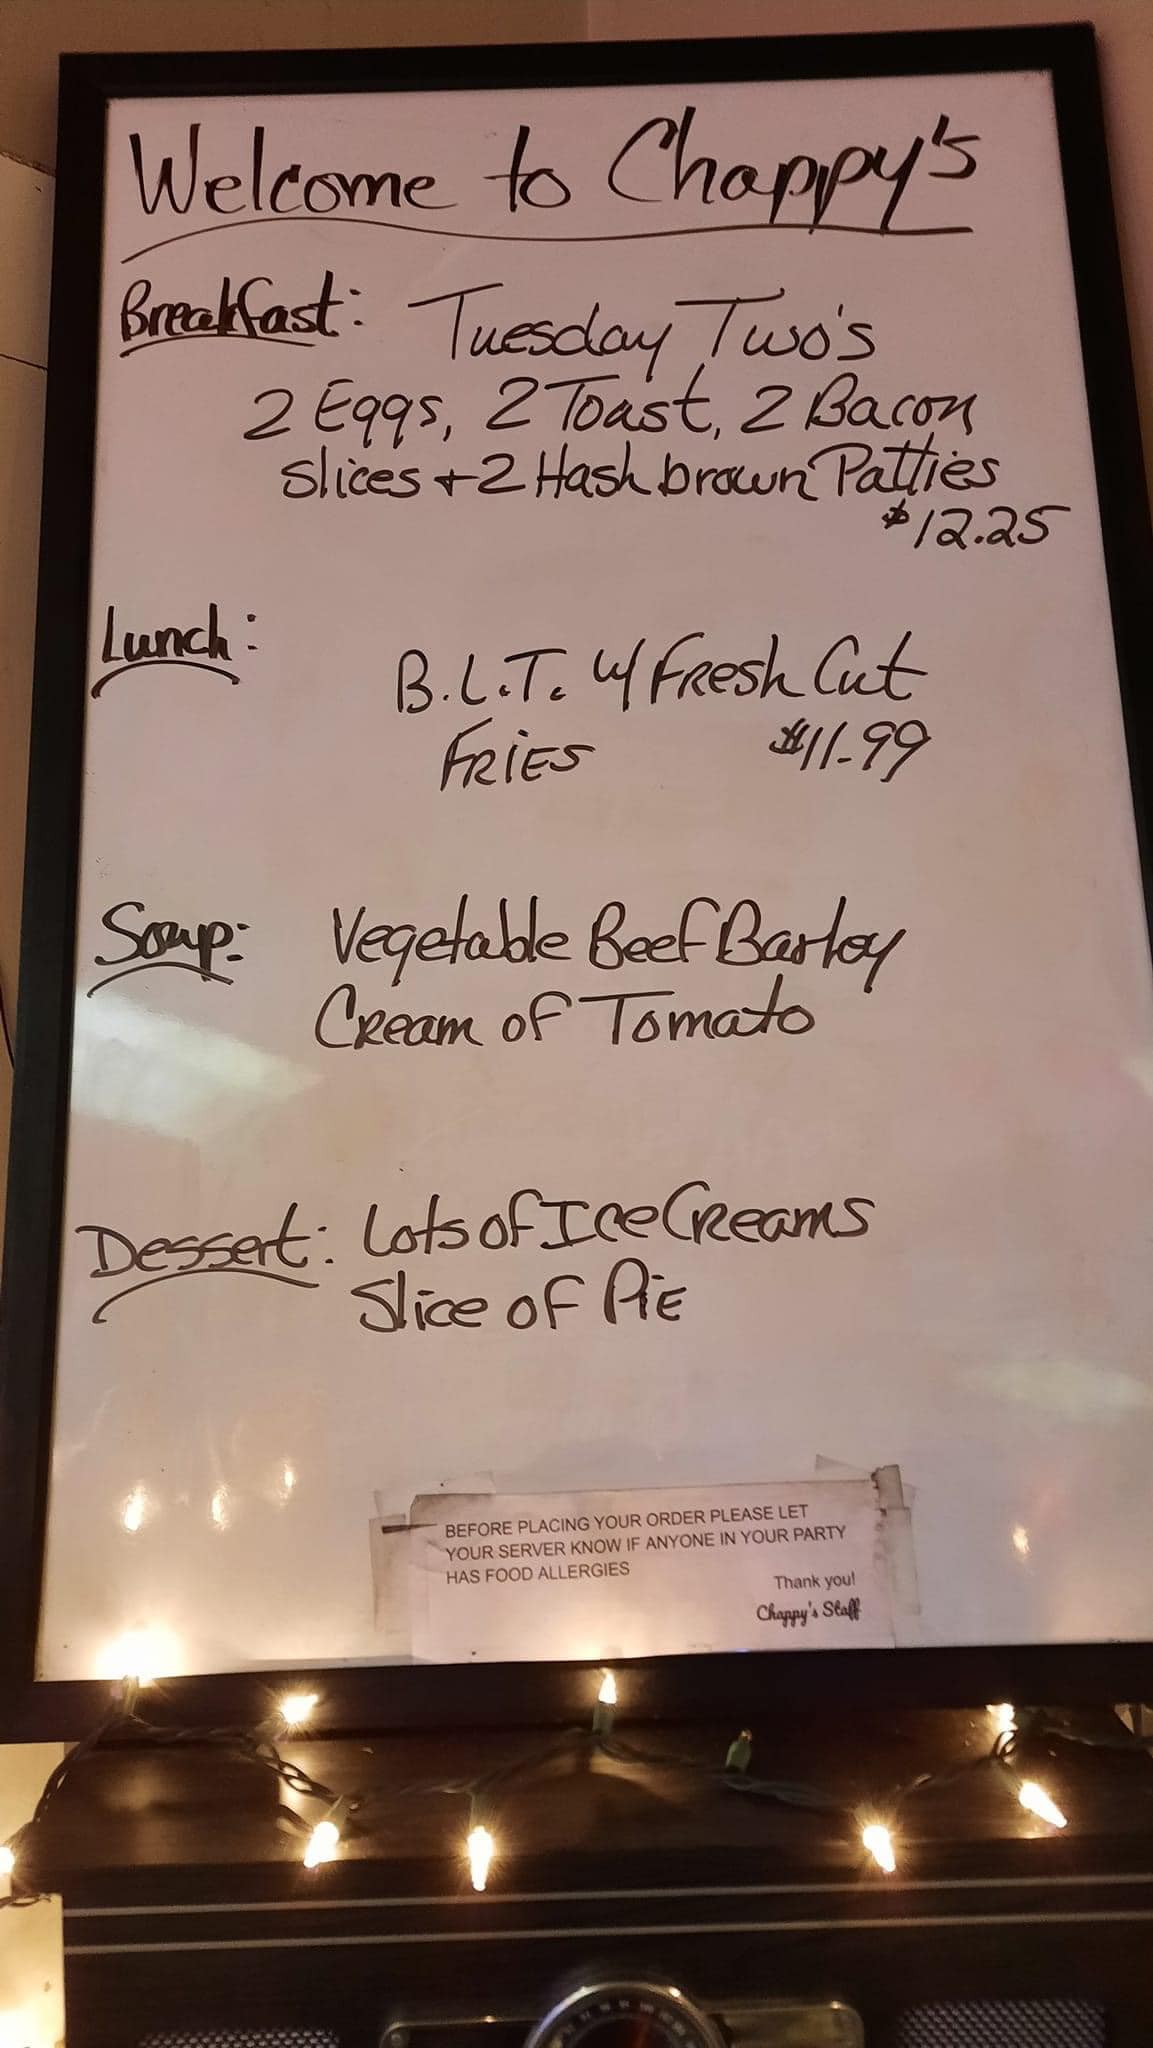 Welcome to Chappy's
Breakfast: Tuesday Two's
2 Eggs, 2 Toast, 2 Bacon
Slices + 2 Hash brown Patties
$12.25
Lunch:
B.L.T. w/ Fresh Cut
Fries $11.99
Soup: Vegetable Beef Barley
Cream of Tomato
Dessert: Lots of Ice Creams
Slice of Pie
BEFORE PLACING YOUR ORDER PLEASE LET
YOUR SERVER KNOW IF ANYONE IN YOUR PARTY
HAS FOOD ALLERGIES
Thank you!
Chappy's Staff